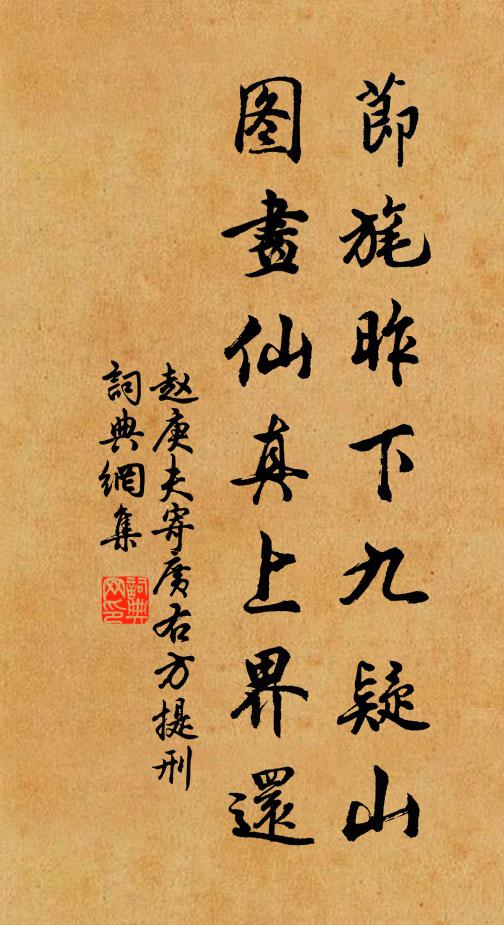 節旄昨下九疑山
图畫仙真上界還
赵庚夫寄廣右方提刑
詞典網集
詞典网印